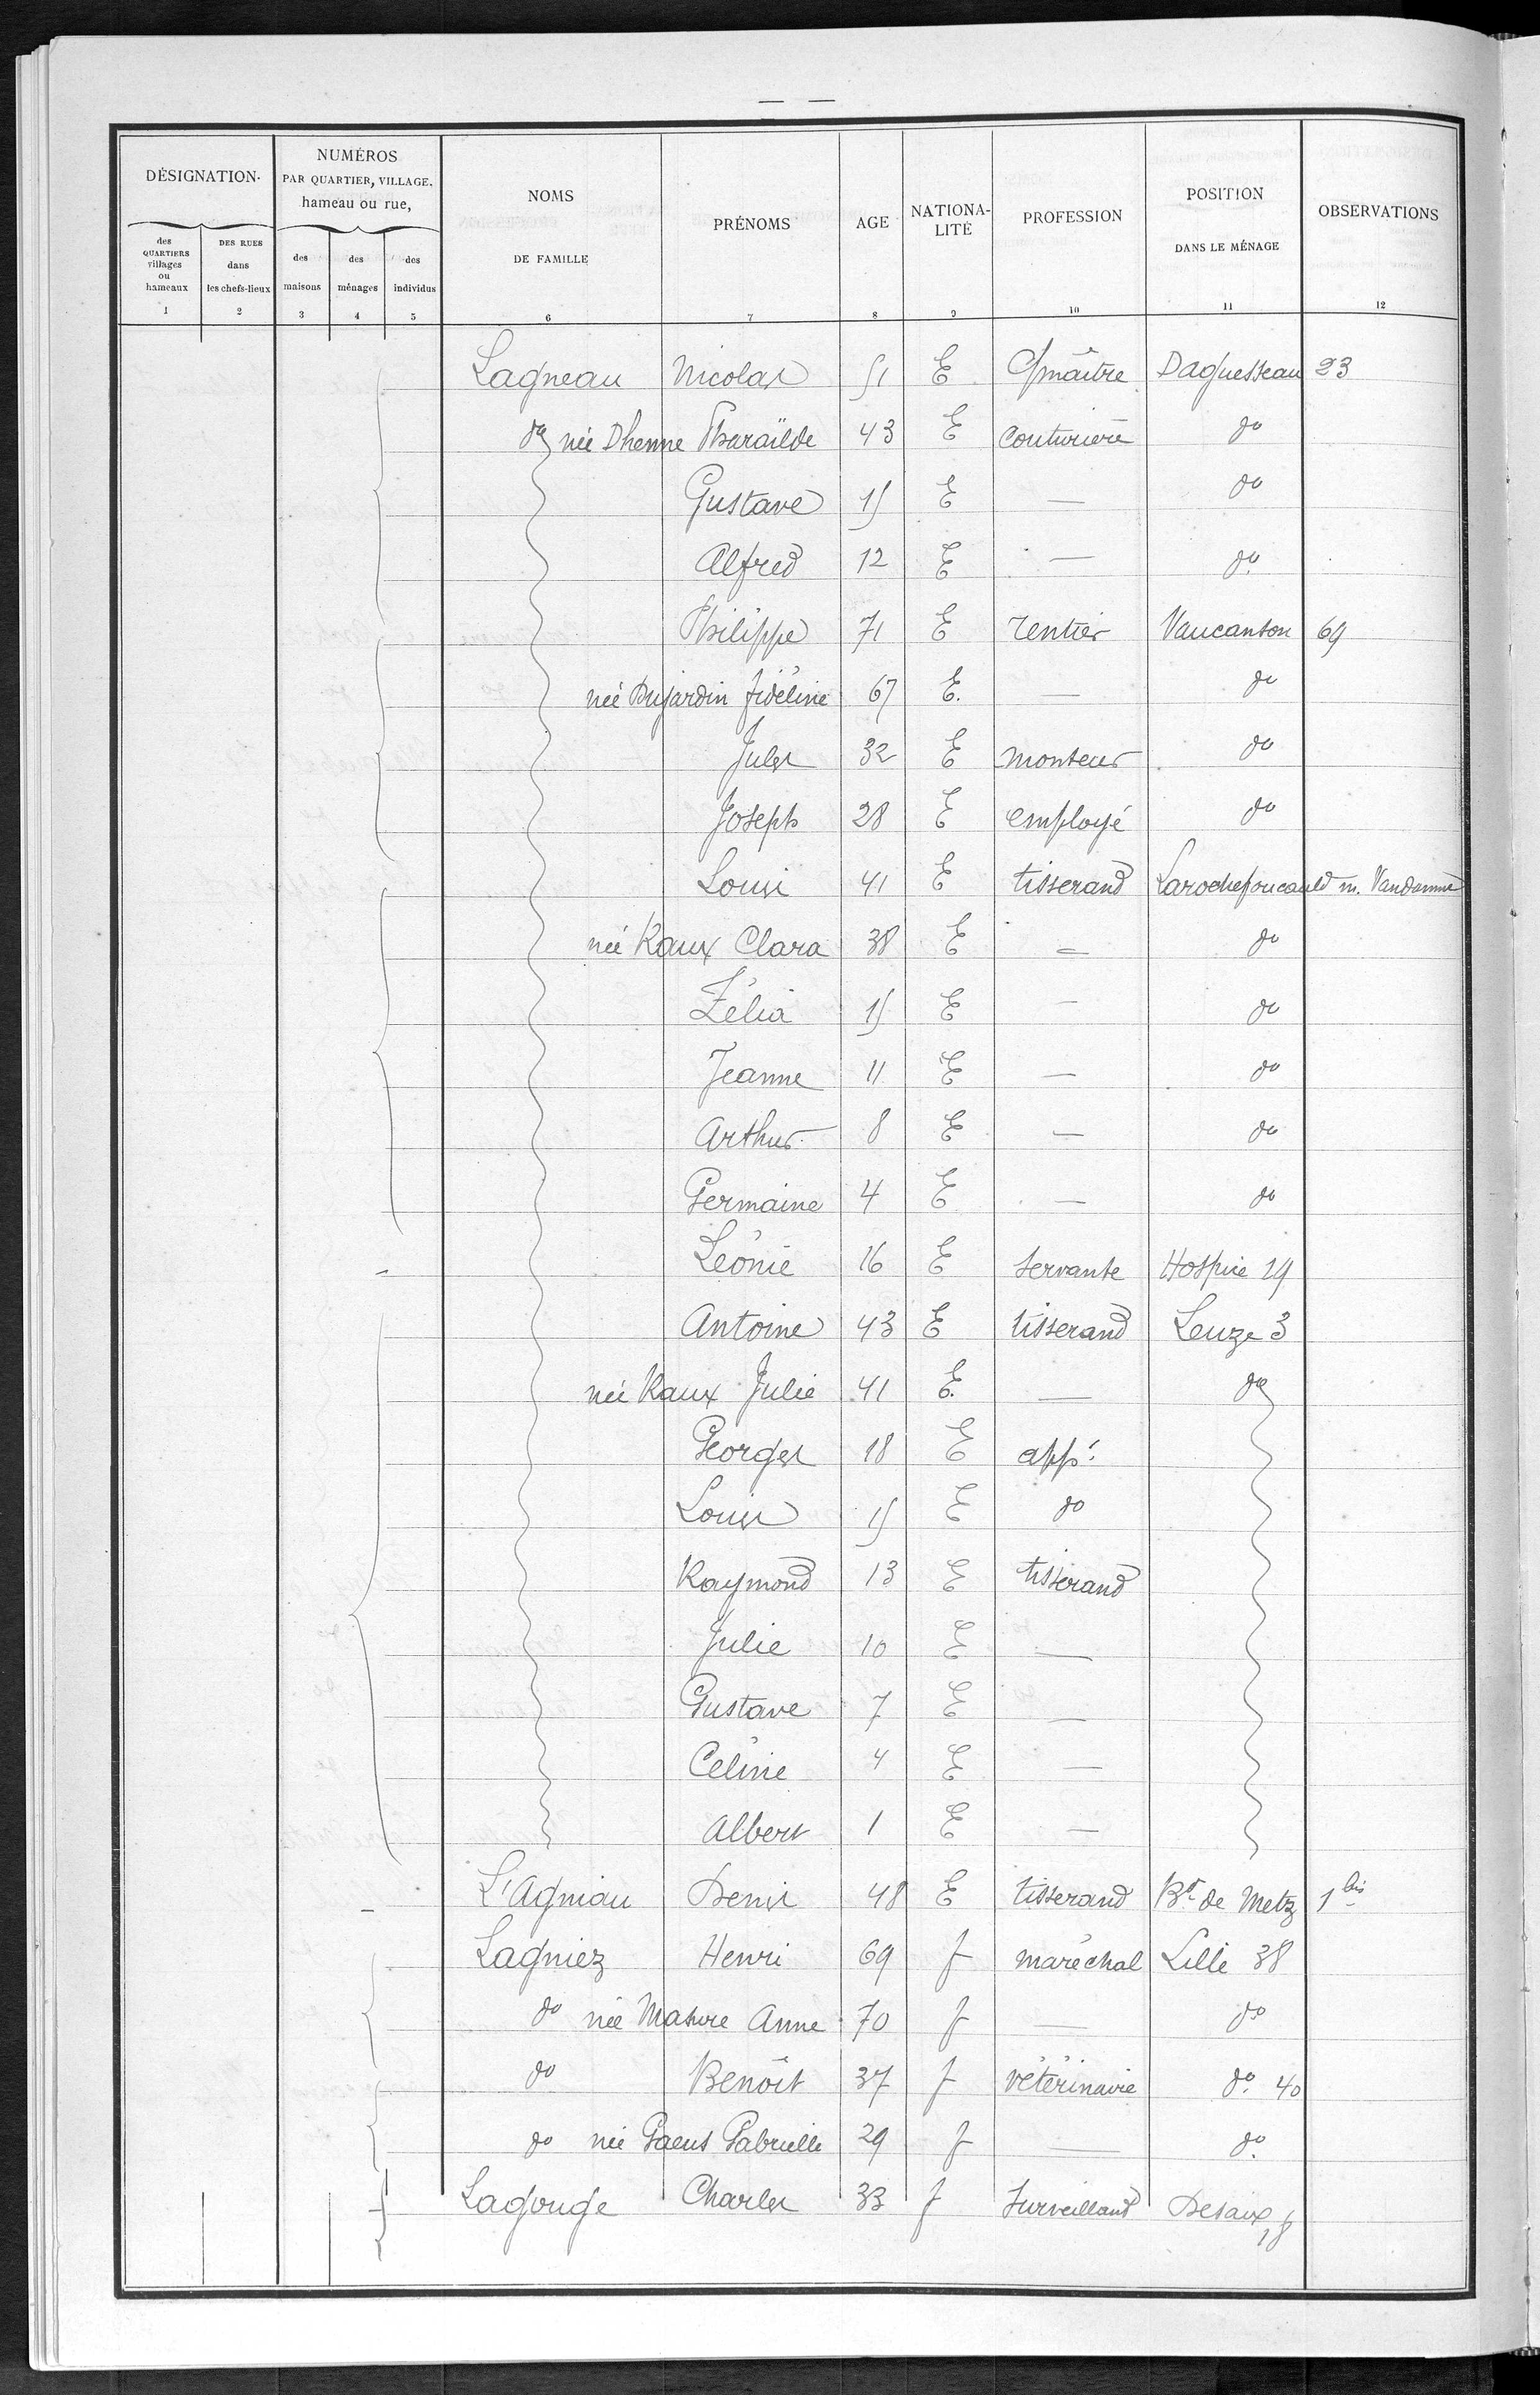 DÉSIGNATION.
des QUARTIERS villages ou hameaux
1
DES RUES dans les chefs-lieux
2
NUMÉROS
PAR QUARTIER, VILLAGE,
hameau ou rue,
des maisons
3
des ménages
4
des individus
5
NOMS
DE FAMILLE
6
PRÉNOMS
7
AGE
8
NATIONA-
LITÉ
9
PROFESSION
10
POSITION
DANS LE MÉNAGE
11
OBSERVATIONS
12
Lagneau Nicolas 51 E Cmaître Daguesseau 23
do née Dhenne Pharaïlde 43 E couturière do
Gustave 15 E — do
Alfred 12 E — do
Philippe 71 E rentier Vaucanson 69
née Dujardin fidéline 67 E. — do
Jules 32 E monteur do
Joseph 28 E employé do
Louis 41 E tisserand Larochefoucauld m. Vandamme
née Raux Clara 38 E — do
Zélia 15 E — do
Jeanne 11 E — do
Arthur 8 E — do
Germaine 4 E — do
Léonie 16 E servante Hospice 19
Antoine 43 E tisserand Leuze 3
née Raux Julie 41 E. — do
Georges 18 E app.
Louis 15 E do
Raymond 13 E tisserand
Julie 10 E —
Gustave 7 E —
Céline 4 E —
Albert 1 E —
L'Agniau Denis 48 E tisserand Bt de Metz 1 bis
Lagniez Henri 69 f maréchal Lille 38
do née Masure Anne 70 f — do
do Benoît 37 f vétérinaire do 40
do née Gabrielle 29 f — do
Lagouge Charles 33 f surveillant Desaix 18